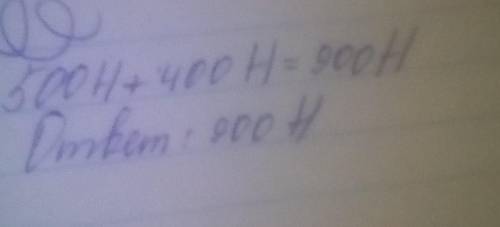 500Н+400Н=900Н
Ответ: 900Н